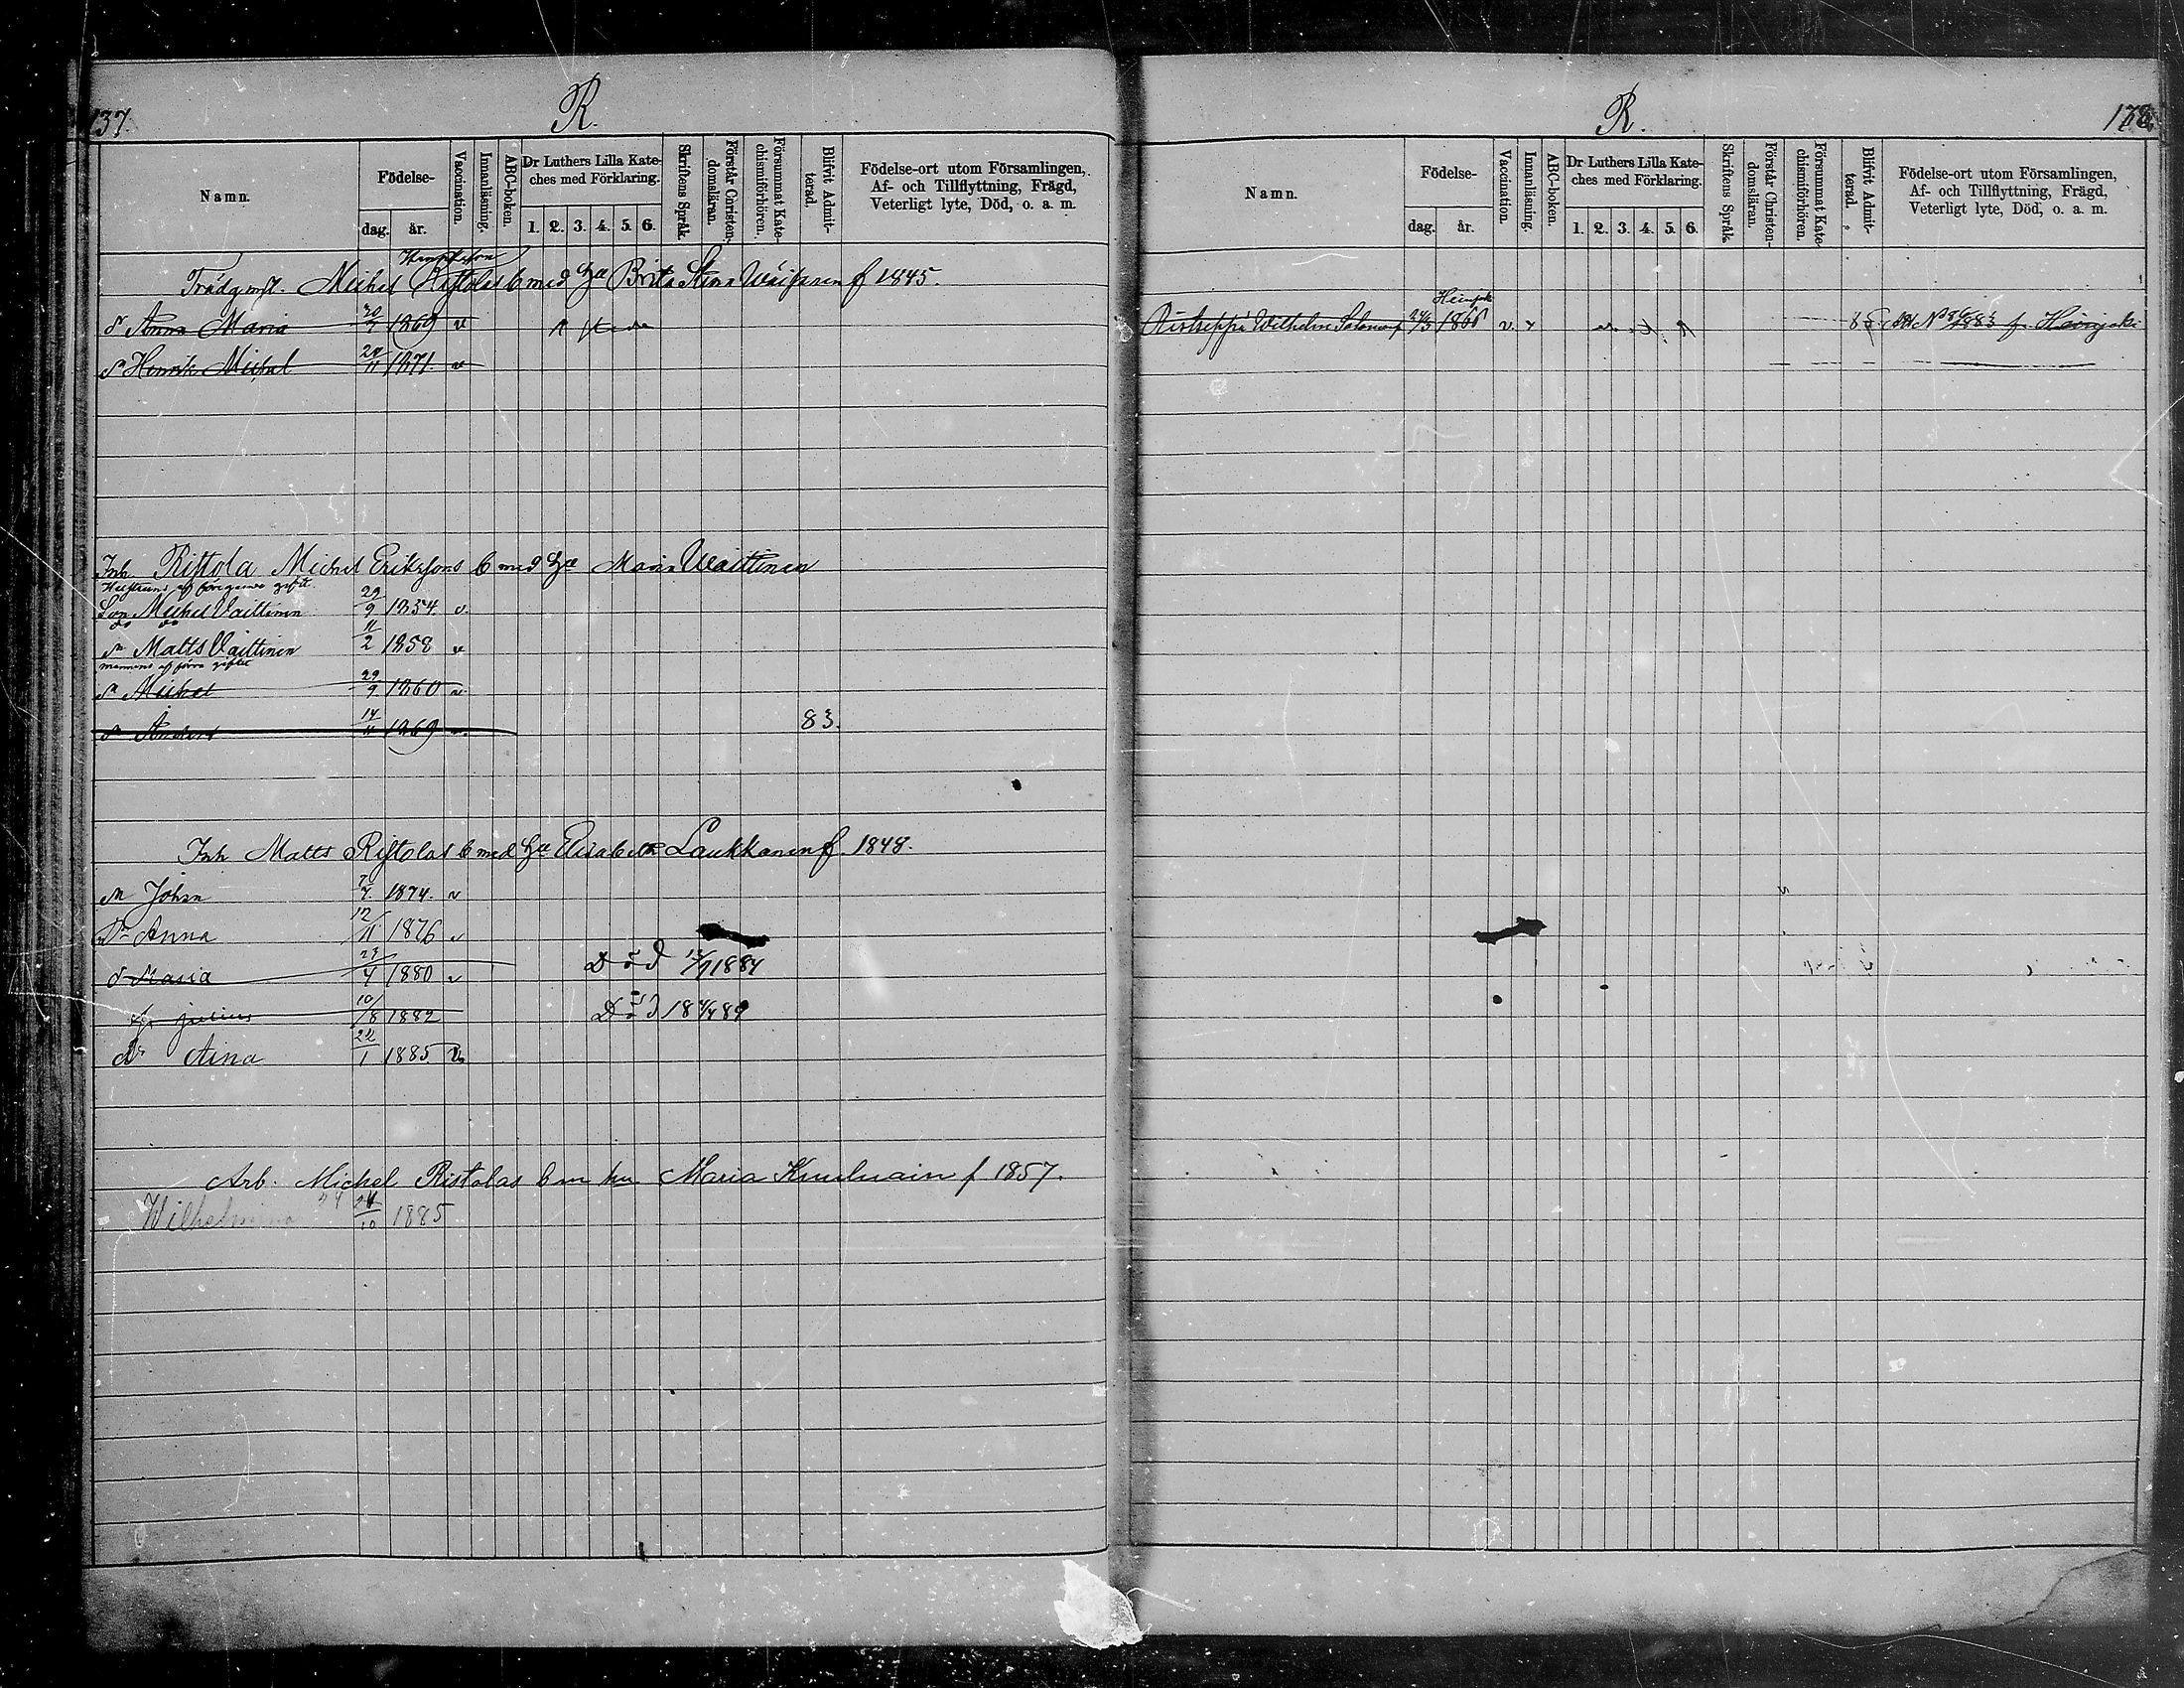 137.
R.
Namn.
Födelse-
dag.
år.
Vaccination.
Innanläsning.
ABC-boken.
Dr Luthers Lilla Kate-
ches med Förklaring.
1. 2. 3. 4. 5. 6.
Skriftens Språk.
Förstår Christen-
domsläran.
Försummat Kate-
chismiförhören.
Blifvit Admit-
terad.
Födelse-ort utom Församlingen,
Af- och Tillflyttning, Frägd,
Veterligt lyte, Död, o. a. m.
Michel Ristolas b med Brita Stina f 1845.
Anna Maria 20/7 1869 v
Henrik Michel 1871. v
Inh. Ristola Michel Erikssons b med Maria Waittinen
Son Michel Vaittinen 29/9 1854. v.
do do
Matts Vaittinen 11/2 1858 v
Michel 29/9 1860 v.
Anders 14/11 1869 v. 83.
Inh Matts Ristolas b med Elisabeth Laukkanen f. 1848.
Johan 7/7. 1874. v
Anna 12/11 1876 v
Maria 1880 v Död 1884
Julius 10/8 1882 Död
Aina 22/1 1885. v
Arb. Michel Ristolas b m hu. Maria f 1857.
Wilhelmina 24 24/10 1885
R.
Namn.
Födelse-
dag.
år.
Vaccination.
Innanläsning.
ABC-boken.
Dr Luthers Lilla Kate-
ches med Förklaring.
1. 2. 3. 4. 5. 6.
Skriftens Språk.
Förstår Christen-
domsläran.
Försummat Kate-
chismiförhören.
Blifvit Admit-
terad.
Födelse-ort utom Församlingen,
Af- och Tillflyttning, Frägd,
Veterligt lyte, Död, o. a. m.
Ristseppä Wilhelm 1866 v.